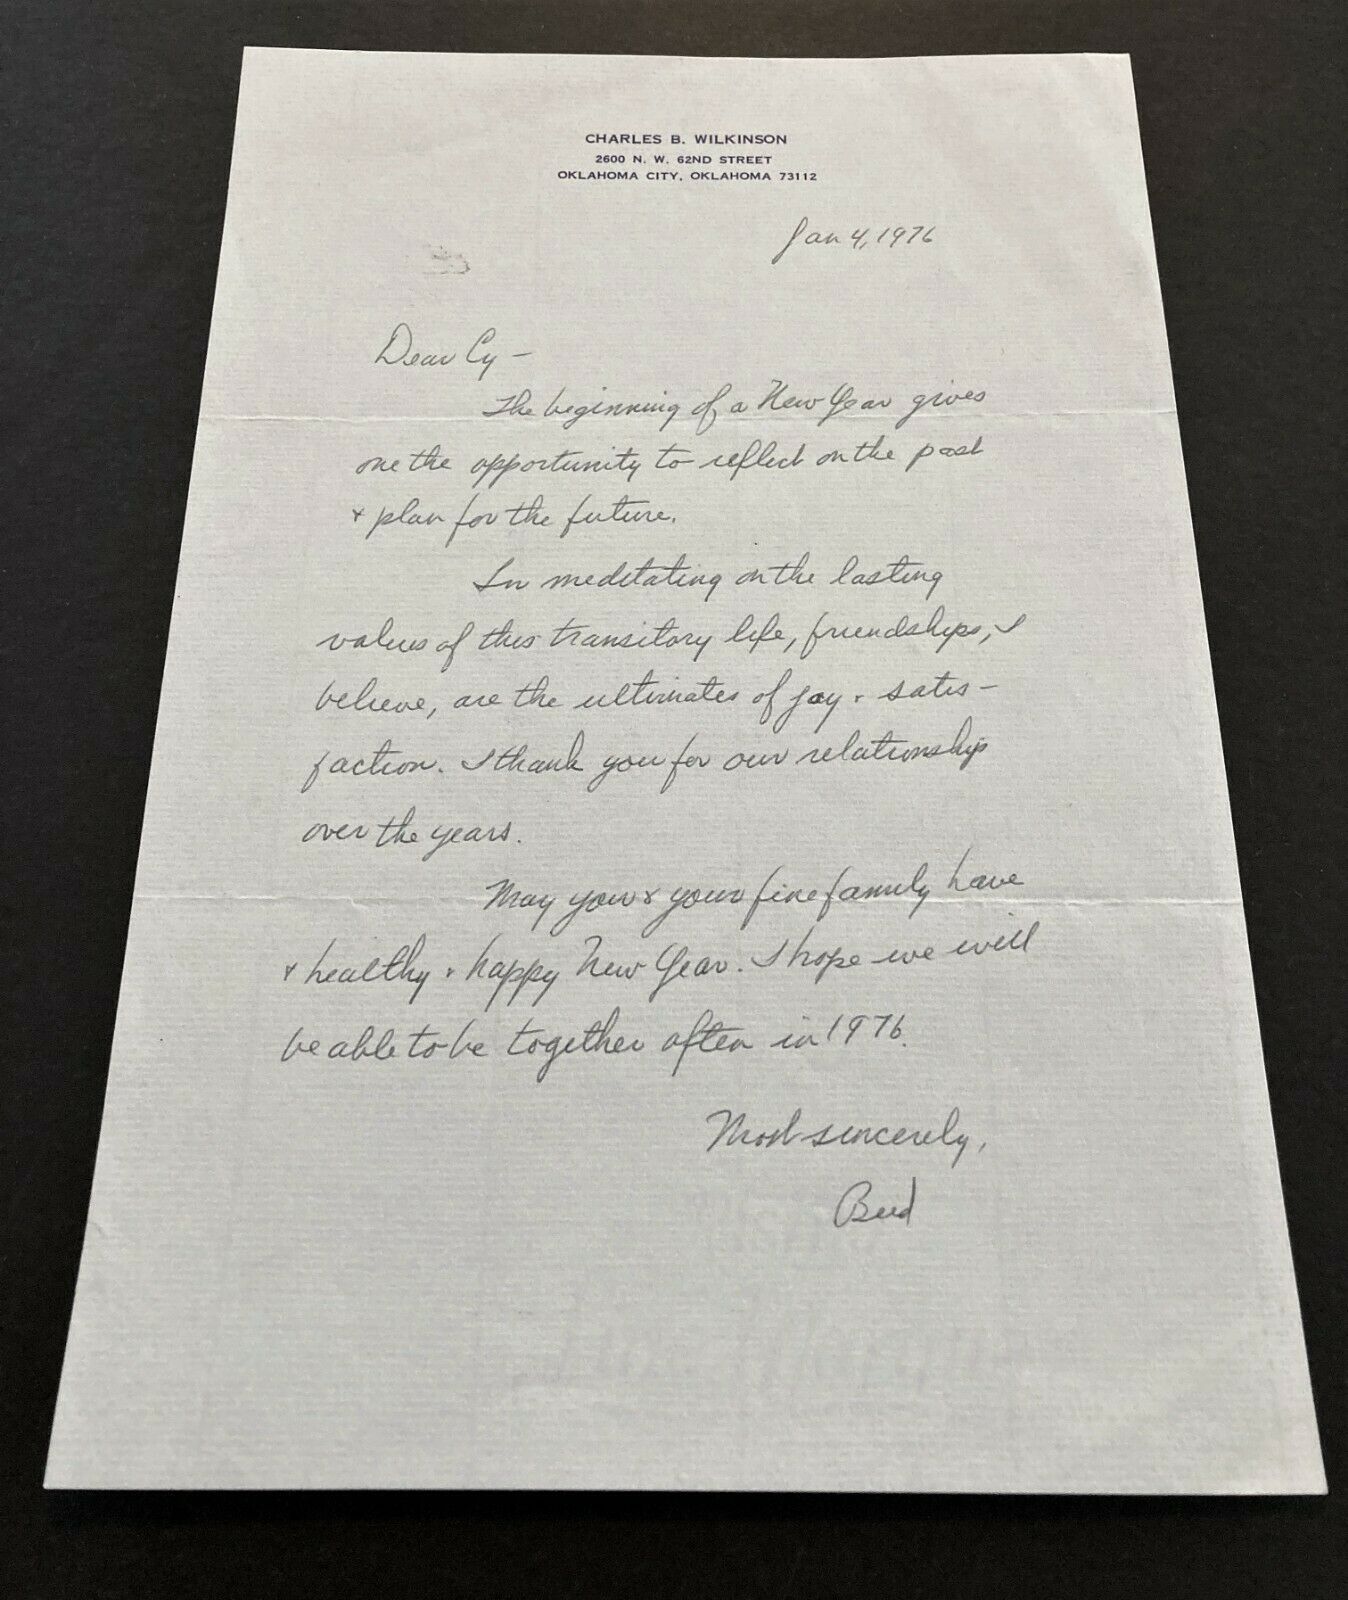 CHARLES B. WILKINSON
2600 N. W. 62ND STREET
OKLAHOMA CITY, OKLAHOMA 73112
Jan 4, 1976
Dear Cy —
The beginning of a New Year gives
one the opportunity to reflect on the past
+ plan for the future.
In meditating on the lasting
values of this transitory life, friendships, I
believe, are the ultimates of joy + satis-
faction. I thank you for our relationship
over the years.
May you + your fine family have
+ healthy + happy New Year. I hope we will
be able to be together often in 1976.
Most sincerely,
Bud